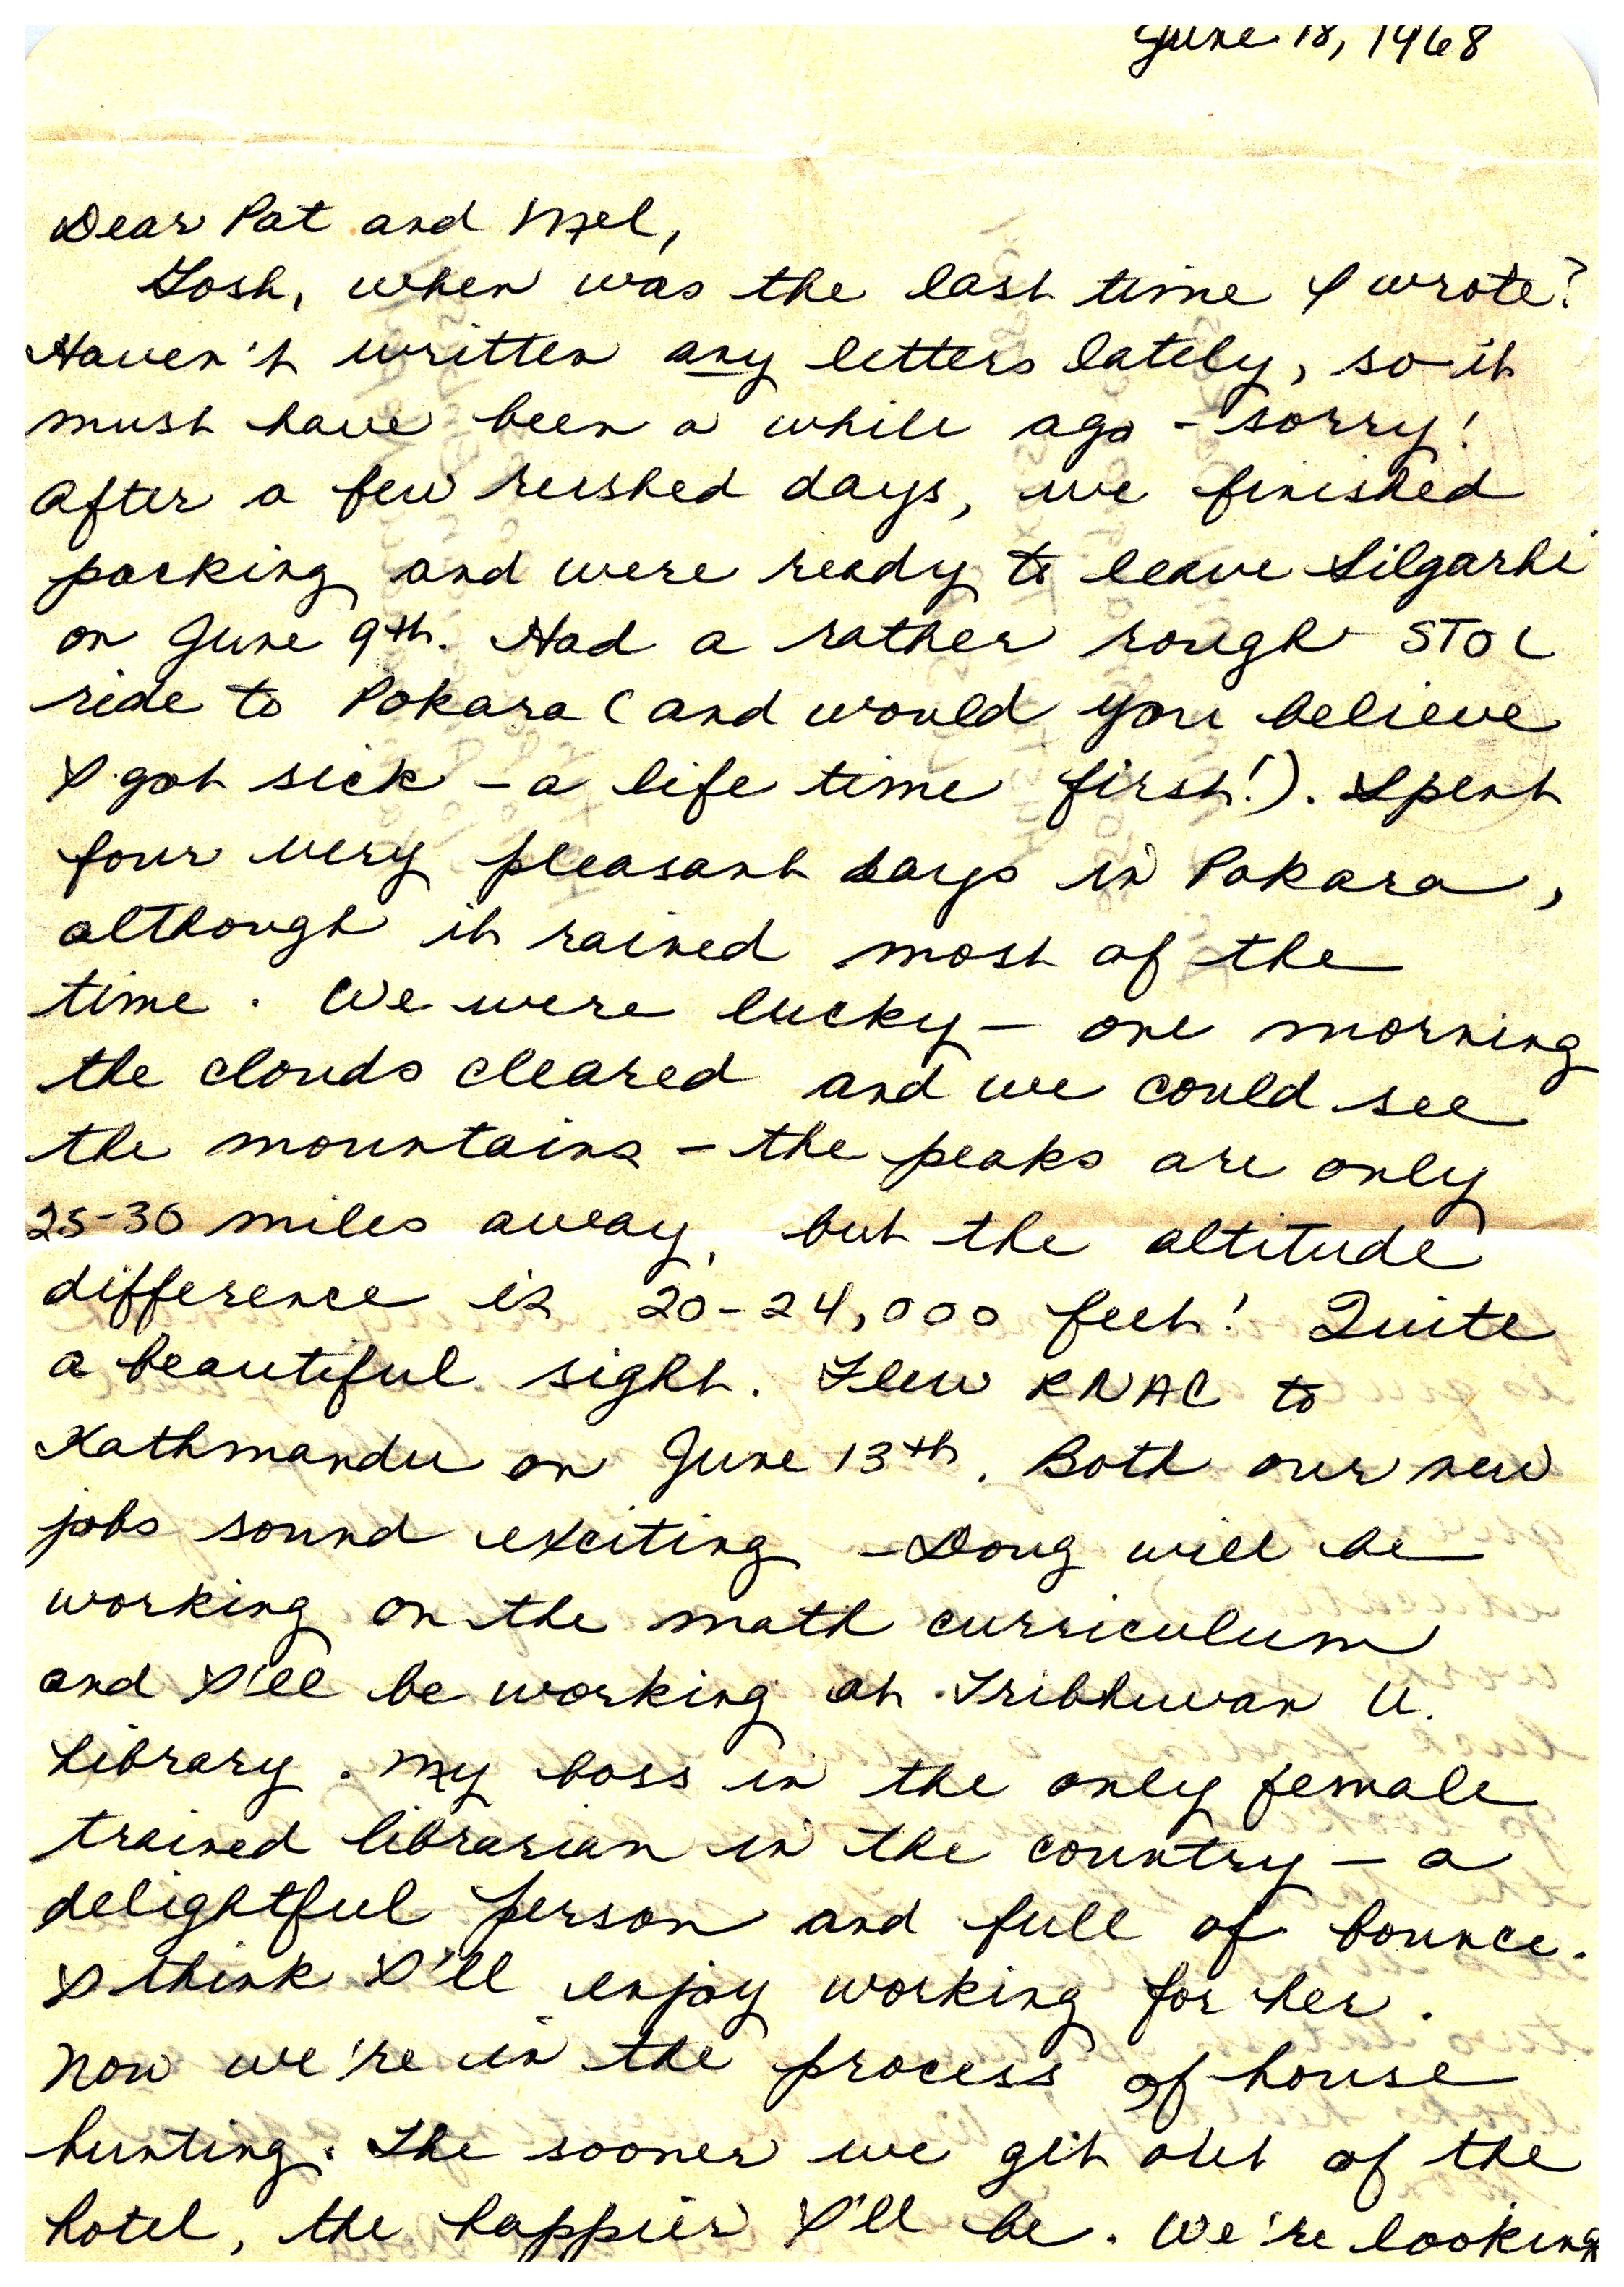 June 18, 1968
Dear Pat and Mel,
Gosh, when was the last time I wrote?
Haven't written any letters lately, so it
must have been a while ago - sorry!
After a few rushed days, we finished
packing and were ready to leave Silgarhi
on June 9th. Had a rather rough STOL
ride to Pokara (and would you believe
I got sick - a life time first!). Spent
four very pleasant days in Pokara,
although it rained most of the
time. We were lucky - one morning
the clouds cleared and we could see
the mountains - the peaks are only
25-30 miles away, but the altitude
difference is 20-24,000 feet! Quite
a beautiful sight. Flew RNAC to
Kathmandu on June 13th. Both our new
jobs sound exciting - Doug will be
working on the math curriculum
and I'll be working at Tribhuvan U.
Library. My boss is the only female
trained librarian in the country - a
delightful person and full of bounce.
I think I'll enjoy working for her.
Now we're in the process of house
hunting. The sooner we get out of the
hotel, the happier I'll be. We're looking